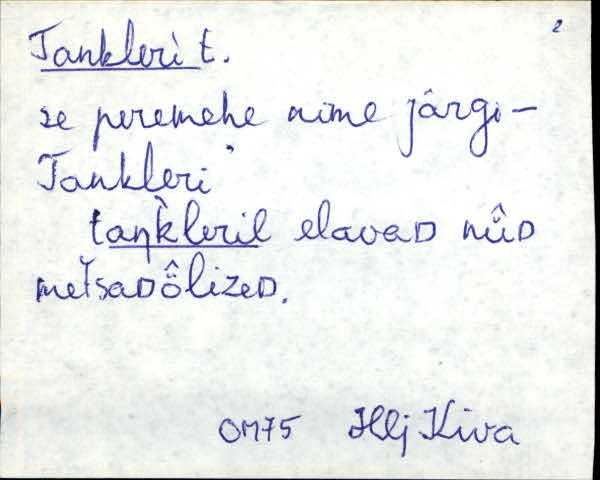 2
Tankleri t.
se peremehe nime järgi –
Tankleri
taŋ̀kleril elavaD nûD
metsaDö̂lizeD.
OM75 Hlj Kiva